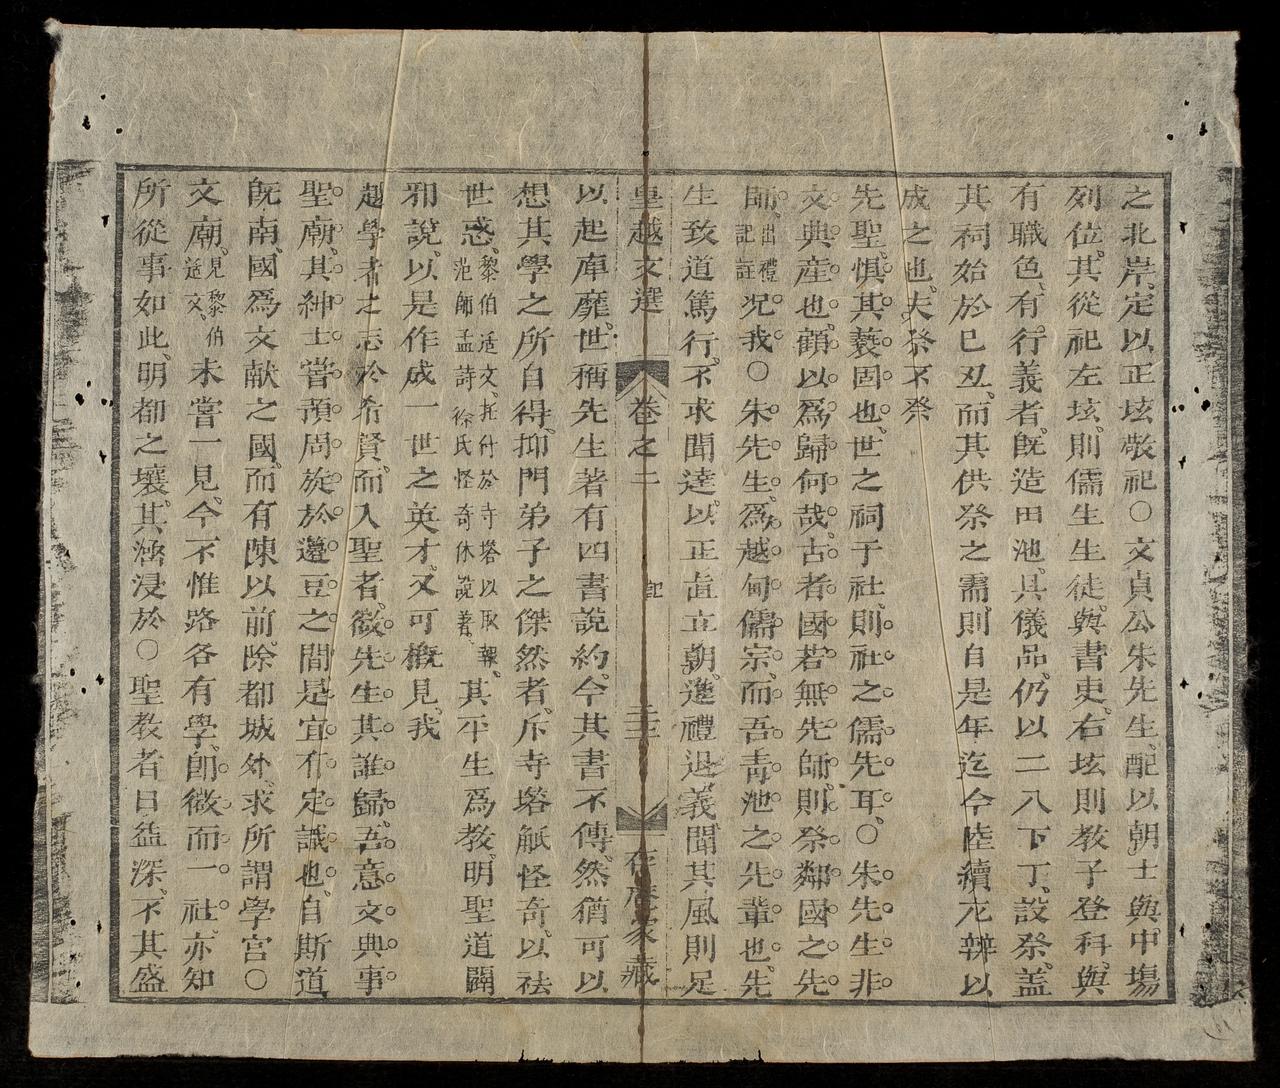 之北岸、定以正垓敬祀〇文貞公朱先生、配以朝士與中塲
列位、其從祀左垓、則儒生生徒、與書吏、右垓則教子登科、與
有職色、有行義者、旣造田池、具儀品、仍以二八下丁、設祭、盖
其祠始於巳丑、而其供祭之需、則自是年迄今陸續尣辨以
成之也、夫祭不祭
先聖、惧其䙝固也、世之祠于社、則社之儒先耳、〇朱先生非
文典產也、顧以爲歸何哉、古者國若無先師、則祭鄰國之先
師、出禮記註况我〇朱先生、爲越甸儒宗、而吾靑池之先輩也、先
生致道篤行、不求聞達、以正直立朝、進禮退義、聞其風則足
皇越文選 卷之二 記 三 存庵家藏
以起庳靡、世稱先生著有四書說約、今其書不傳、然猶可以
想其學之所自得、抑門弟子之傑然者、斥寺塔觝怪奇、以祛
世惑、黎伯适文、托付於寺塔以取報、范師孟詩徐氏怪奇休說著、其平生爲教、明聖道闢
邪說、以是作成一世之英才、又可槪見、我
越學者之志於希賢、而入聖者、微先生其誰歸、吾意文典事
聖廟、其紳士嘗預周旋於籩豆之間、是宜有定議也、自斯道
旣南、國爲文献之國、而有陳以前、除都城外、求所謂學宮〇
文廟、見黎伯适文、未嘗一見、今不惟路各有學、卽微而一社、亦知
所從事如此、明都之壤、其涵浸於〇聖教者日益深、不其盛